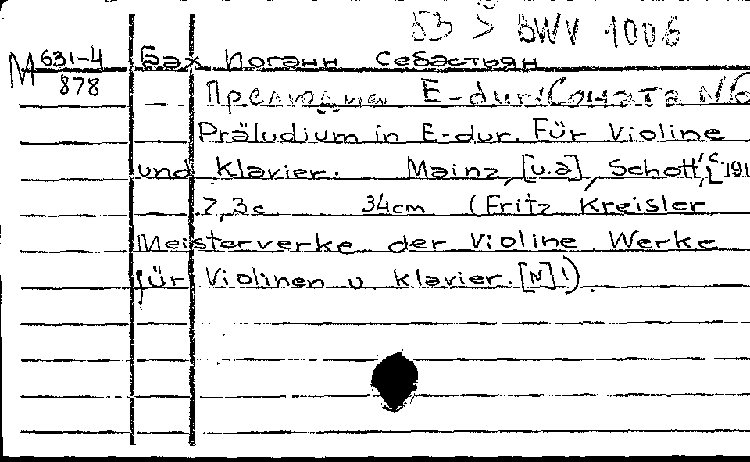 53 > BWV 1006
М 631-4 Бах Иоганн Себастьян
878 Прелюдия E-dur: (Соната N6
Präludium in E-dur. Für Violine
und Klavier. Mainz, [u.a], Schott's, [191
7, 3 c 34cm (Fritz Kreisler
Meisterverke der Violine Werke
für Violinen u klavier. [N]!)